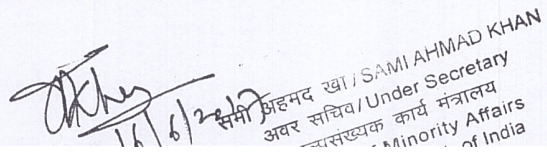 16/6/2017
समी अहमद खा / SAMI AHMAD KHAN
अवर सचिव/Under Secretary
संख्यक कार्य मंत्रालय
Minority Affairs
of India